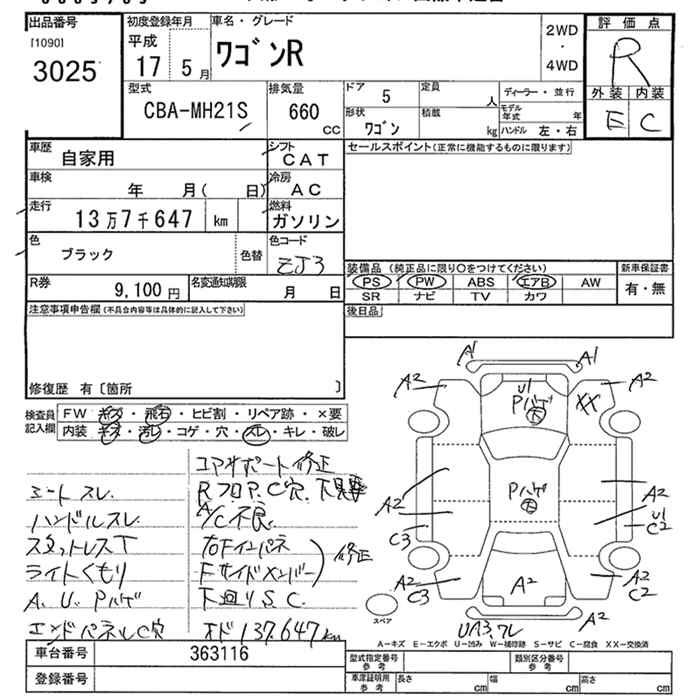 出品番号
[1090]
3025
初度登録年月
平成
17 5月
車名・グレード
ワゴンR
2WD
・
4WD
評価点
R
外装 内装
E C
型式
CBA-MH21S
排気量
660
cc
ドア 5
定員 人
形状 ワゴン
積載 kg
ディーラー・並行
モデル年式 年
ハンドル 左・右
車歴 自家用
シフト CAT
車検 年 月( 日)
冷房 AC
走行 13万7千647 km
燃料 ガソリン
色 ブラック 色替
色コード ZJ3
R券 9,100円
名変通知期限 月 日
セールスポイント(正常に機能するものに限ります)
装備品 (純正品に限り〇をつけてください)
PS PW ABS エアB AW
SR ナビ TV カワ
新車保証書
有・無
後日品
注意事項申告欄 (不具合内容等は具体的に記入して下さい)
修復歴 有〔箇所 〕
検査員記入欄
FW キズ・飛石・ヒビ割・リペア跡・×要
内装 キズ・汚レ・コゲ・穴・スレ・キレ・破レ
コアサポート修正
シートスレ
RフロP.C穴.
ハンドルスレ
A/C不良
スタットレスT
右Fインパネ
ライトくもり
Fサイドメンバー
修正
A.U.Pハゲ
下回りS.C.
エンドパネルC穴
オド137.647km
A1 A1
A2 A2
U1
Pハゲ
大
XX
Pハゲ
大
A2 A2
U1
C3 C2
A2 A2 A2
C3 C2
A2
スペア
UA3.ワレ
A－キズ E－エクボ U－凹み W－補修跡 S－サビ C－腐食 XX－交換済
車台番号 363116
登録番号
型式指定番号
参考
類別区分番号
参考
車庫証明用
参考
長さ cm
幅 cm
高さ cm